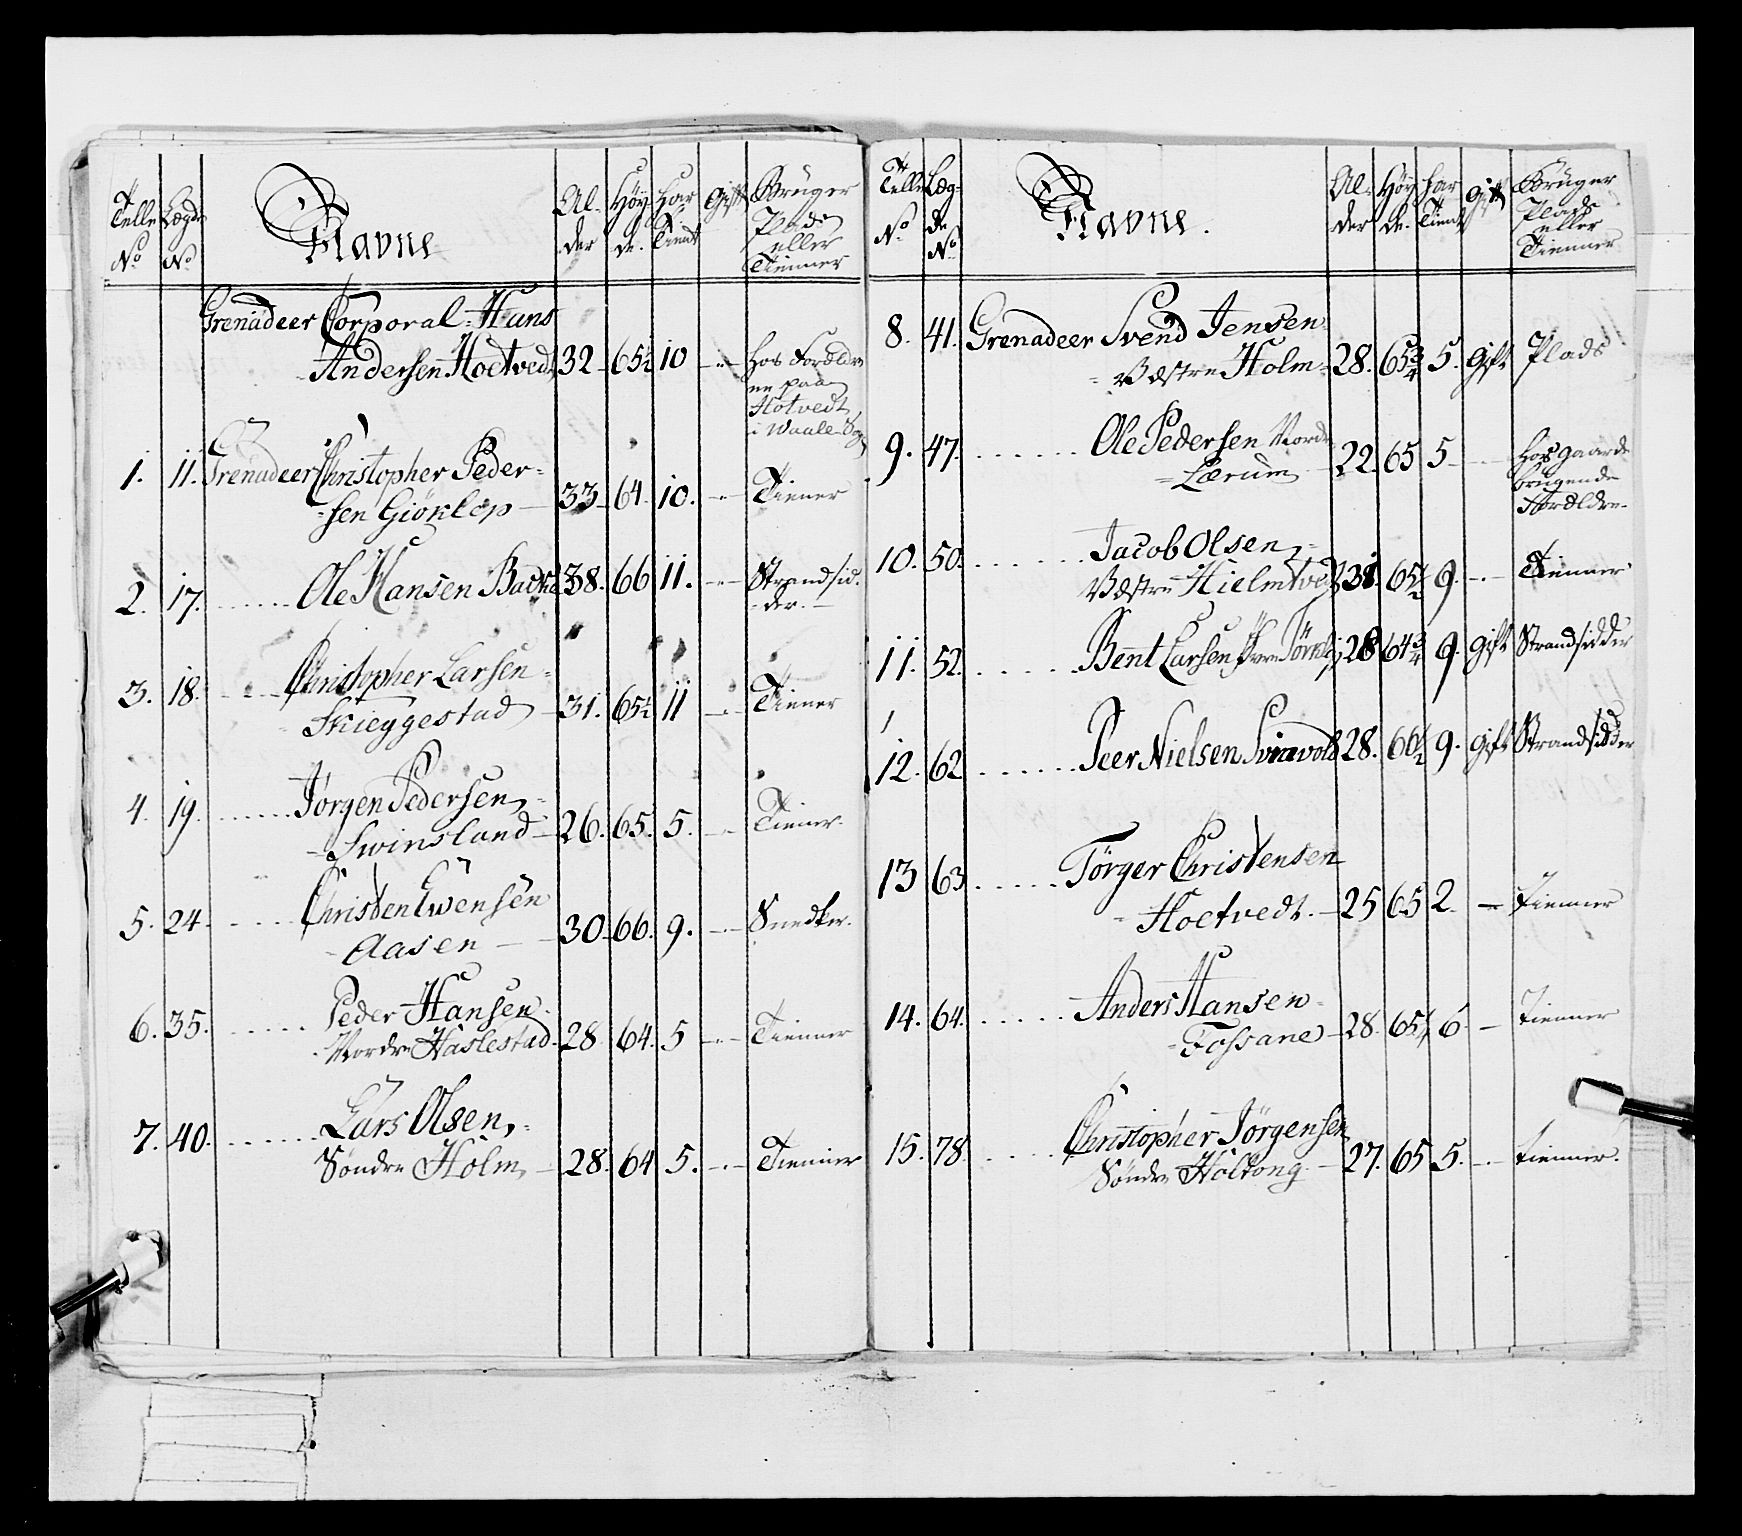 Telle Lægds Navne Al- Høy Har Gift Bruger
No No der de. Tient Plads
eller
Tienner
Grenadeer Corporal Hans
Andersen Hoetvedt 32 65½ 10 -..- hos Forældre
ne paa
Hotvedt
i Waale Sog
1. 11. Grenadeer Christopher Peder-
sen Giöklep 33 64. 10. -..- Tiener
2. 17. ...... Ole Hansen Backe 38. 66 11. -..- Strandsid-
der.
3. 18. ...... Christopher Larsen
Skieggestad 31. 65½ 11 -..- Tiener
4. 19. ...... Jørgen Pedersen
Swinsland 26. 65. 5. -..- Tiener.
5. 24. ...... Christen Ewensen
Aasen 30. 66. 9. -..- Snedker.
6. 35. ...... Peder Hansen
Nordre Haslestad 28 64. 5 -..- Tienner
7. 40. ...... Lars Olsen
Søndre Holm 28. 64 5. -..- Tienner
Telle Læg- Navne. Al- Høy Har Gift Bruger
No de No der de. Tient Plads
eller
Tienner
8. 41. Grenadeer Svend Jensen
Væstre Holm 28. 65¾ 5. Gift Plads
9. 47. ...... Ole Pedersen Nordre
Lærum 22. 65 5 hos gaard
brugende
Forældre
10. 50. ...... Jacob Olsen
Væstre Hielmtvedt 31. 65½ 9. -..- Tienner
11. 52. ...... Bent Larsen 28 64¾ 9. Gift Strandsidder
12. 62 ...... Peer Nielsen Svinevold 28. 60½ 9. Gift Strandsidder
13 63 ...... Törger Christensen
Hoetvedt. 25 65 2. - Tienner
14. 64. ...... Anders Hansen
Fossane 28. 65½ 6 - Tienner
15. 78. ...... Christopher Jörgensen
Søndre Holtong 27. 65 5. -..- tienner.